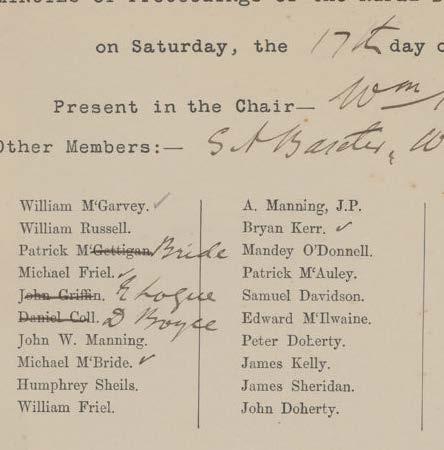 MINUTES of Proceedings of the Rural D
on Saturday, the 17th day o
Present in the Chair— Wm
Other Members:— S A Baxter, W
William M'Garvey. ✓
William Russell.
Patrick M'Gettigan. Bride
Michael Friel. ✓
John Griffin. E Logue
Daniel Coll. D Boyce
John W. Manning.
Michael M'Bride. ✓
Humphrey Sheils.
William Friel.
A. Manning, J.P.
Bryan Kerr. ✓
Mandey O'Donnell.
Patrick M'Auley.
Samuel Davidson.
Edward M'Ilwaine.
Peter Doherty.
James Kelly.
James Sheridan.
John Doherty.